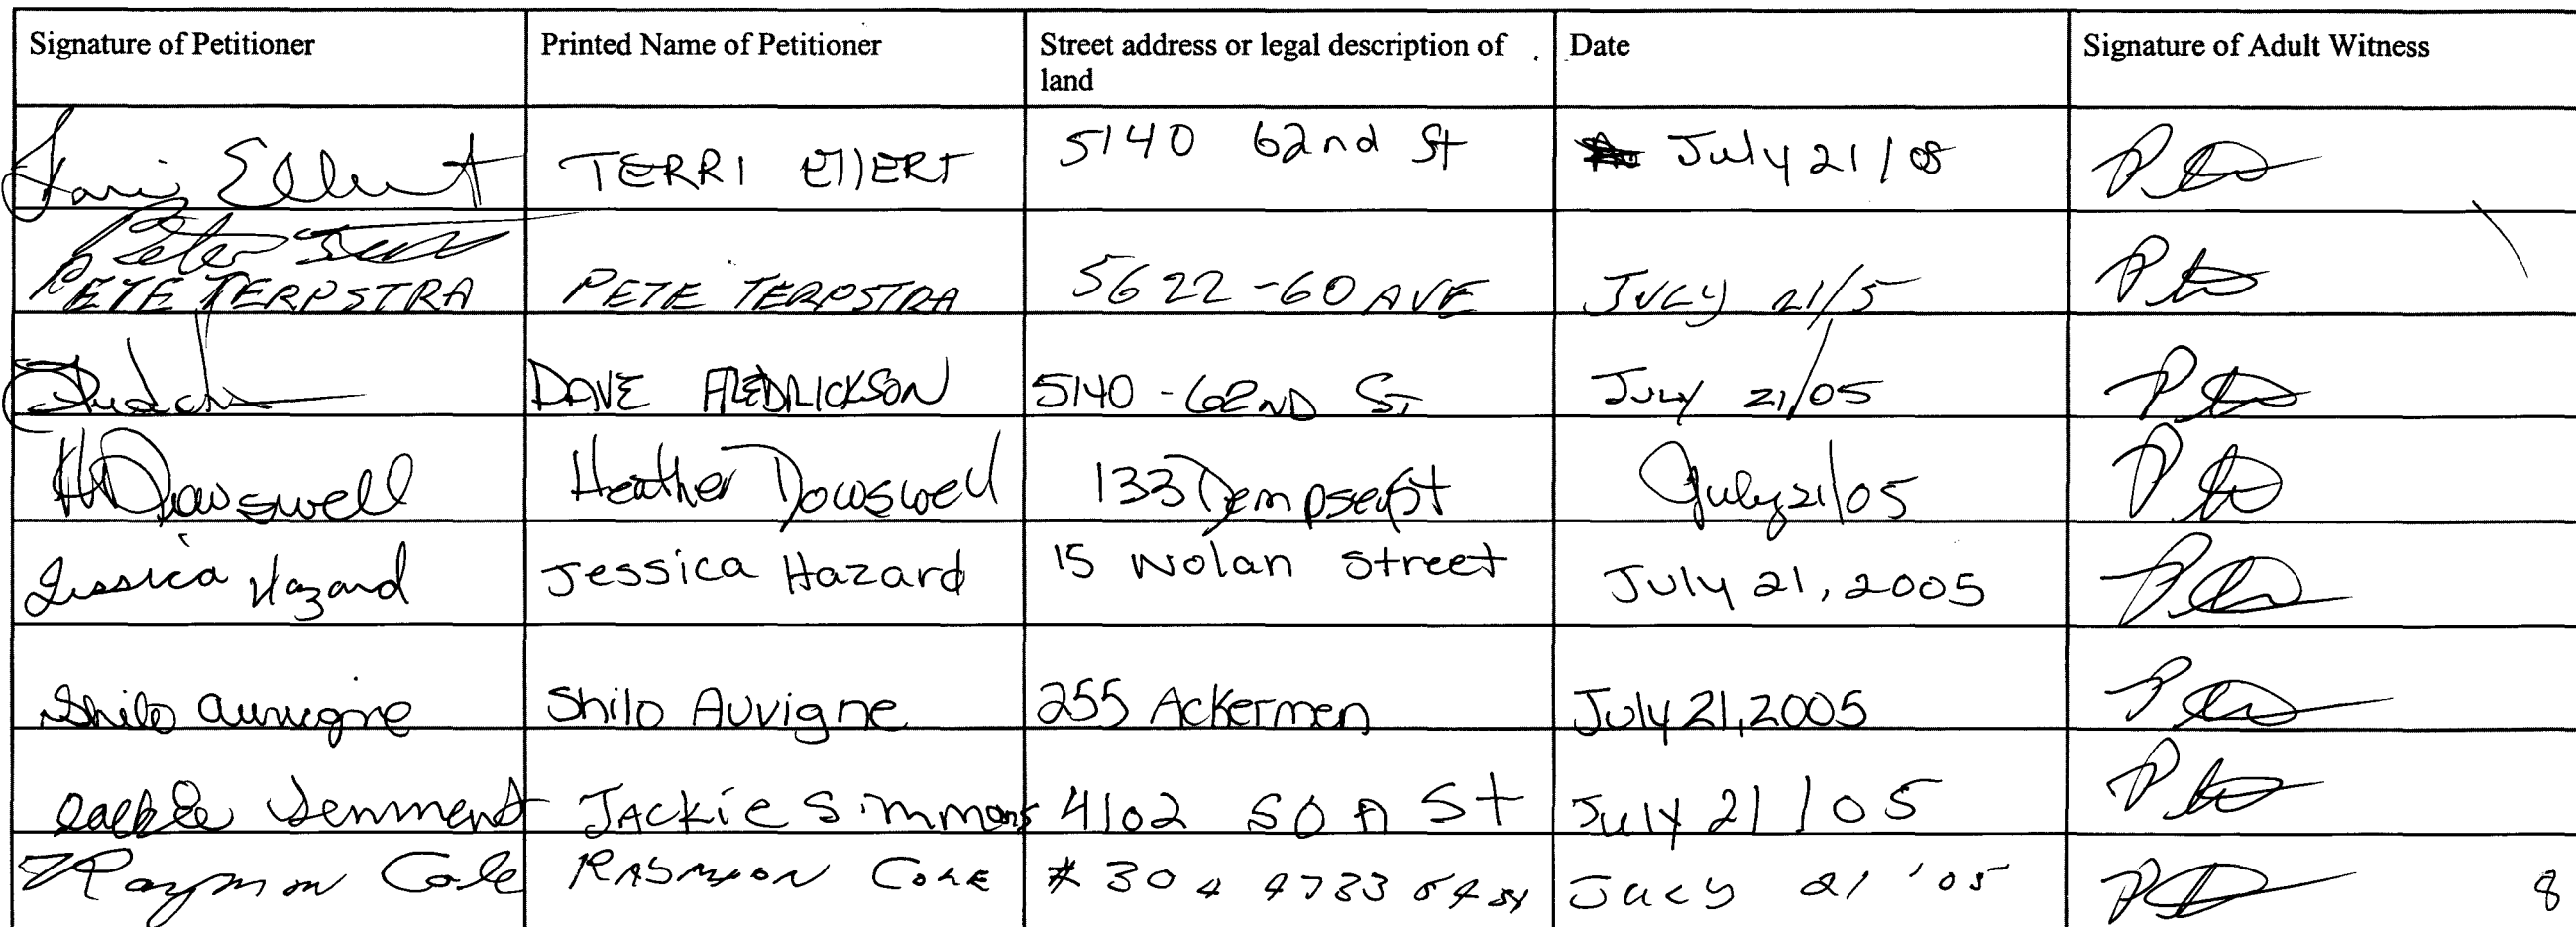 Signature of Petitioner Printed Name of Petitioner Street address or legal description of land Date Signature of Adult Witness
TERRI 5140 62nd St July 21/05
Peter
PETE TERPSTRA PETE TERPSTRA 5622-60 AVE JULY 21/5
DAVE FREDRICKSON 5140-62ND ST July 21/05
H Dowswell Heather Dowswell 133 Dempsey St July 21/05
Jessica Hazard Jessica Hazard 15 Nolan Street July 21, 2005
Shilo Auvigne Shilo Auvigne 255 Ackermen July 21, 2005
JACKIE Simmons 4102 50A St July 21/05
Raymon Cole RAYMON COLE #304 4733 54 ST JULY 21 '05
8